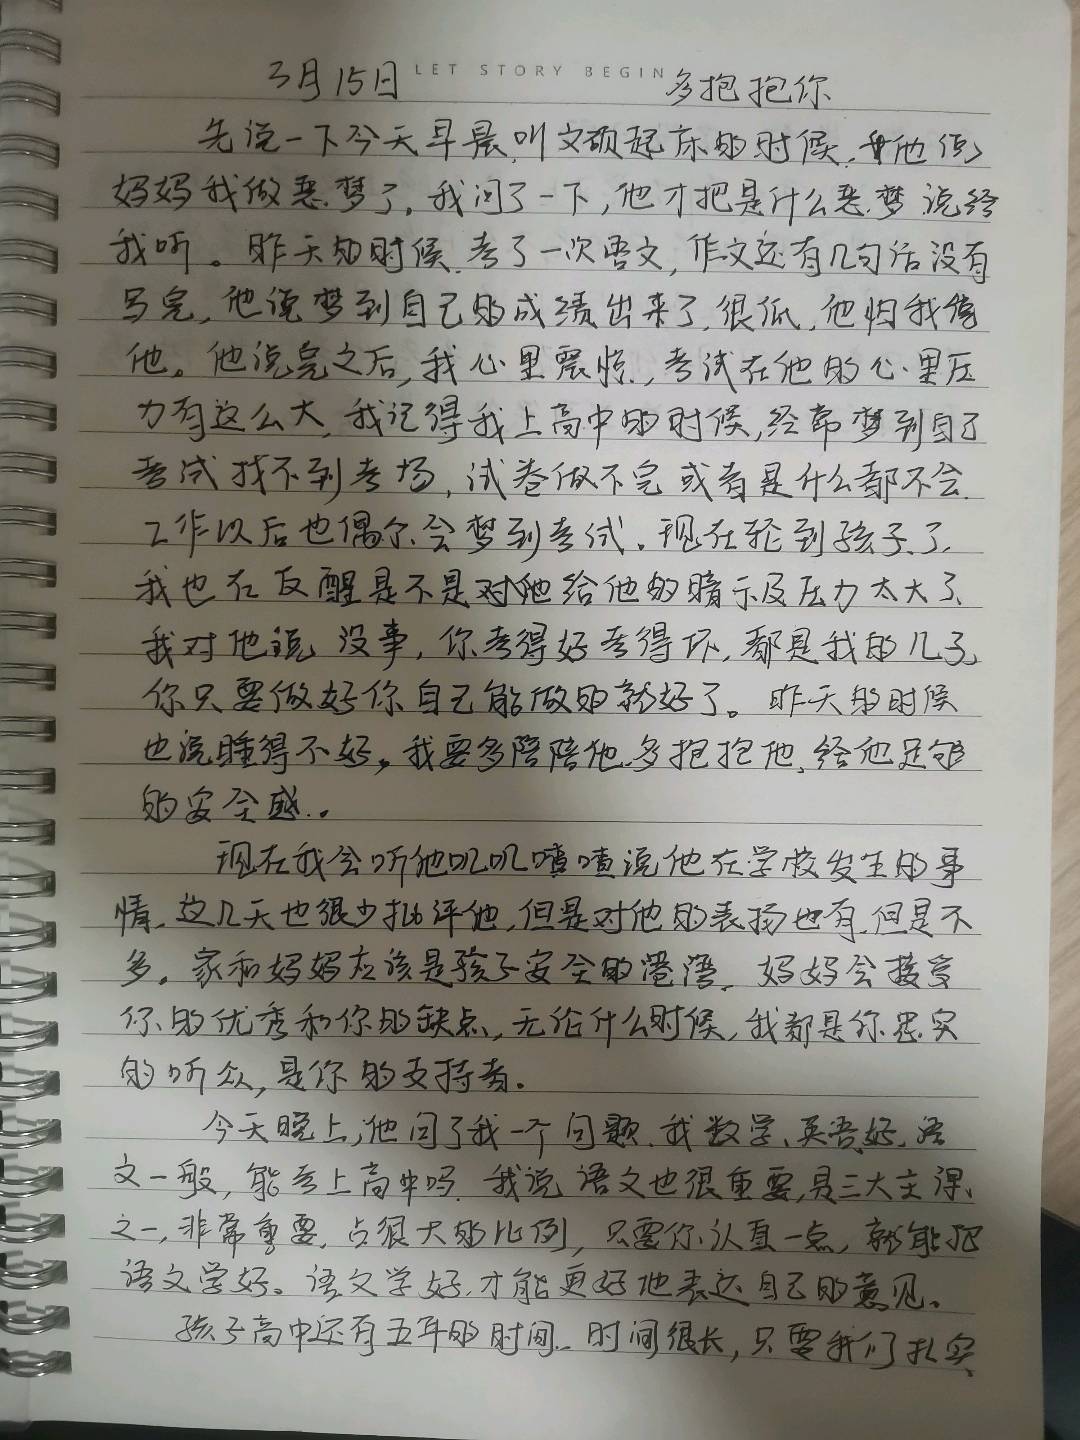 3月15日 LET STORY BEGIN 多抱抱你
先说一下今天早晨,叫文硕起床的时候,他说
妈妈我做恶梦了。我问了一下,他才把是什么恶梦说给
我听。昨天的时候,考了一次语文,作文还有几句话没有
写完,他说梦到自己的成绩出来了,很低,他怕我
他。他说完之后,我心里震惊,考试在他的心里压
力有这么大,我记得我上高中的时候,经常梦到自己
考试找不到考场,试卷做不完或者是什么都不会.
工作以后也偶尔会梦到考试。现在轮到孩子了,
我也在反醒是不是对他给他的暗示及压力太大了、
我对他说 没事,你考得好考得坏,都是我的儿子,
你只要做好你自己能做的就好了。昨天的时候
也说睡得不好。我要多陪陪他.多抱抱他,给他足够
的安全感。
现在我会听他叽叽喳喳说他在学校发生的事
情,这几天也很少批评他,但是对他的表扬也有,但是不
多。家和妈妈应该是孩子安全的港湾,妈妈会接受
你的优秀和你的缺点,无论什么时候,我都是你忠实
的听众,是你的支持者。
今天晚上,他问了我一个问题.我数学、英语好,语
文一般,能考上高中吗.我说语文也很重要,是三大主课
之一,非常重要,占很大的比例,只要你认真一点,就能把
语文学好。语文学好,才能更好地表达自己的意见。
孩子高中还有五年的时间.时间很长,只要我们扎实、